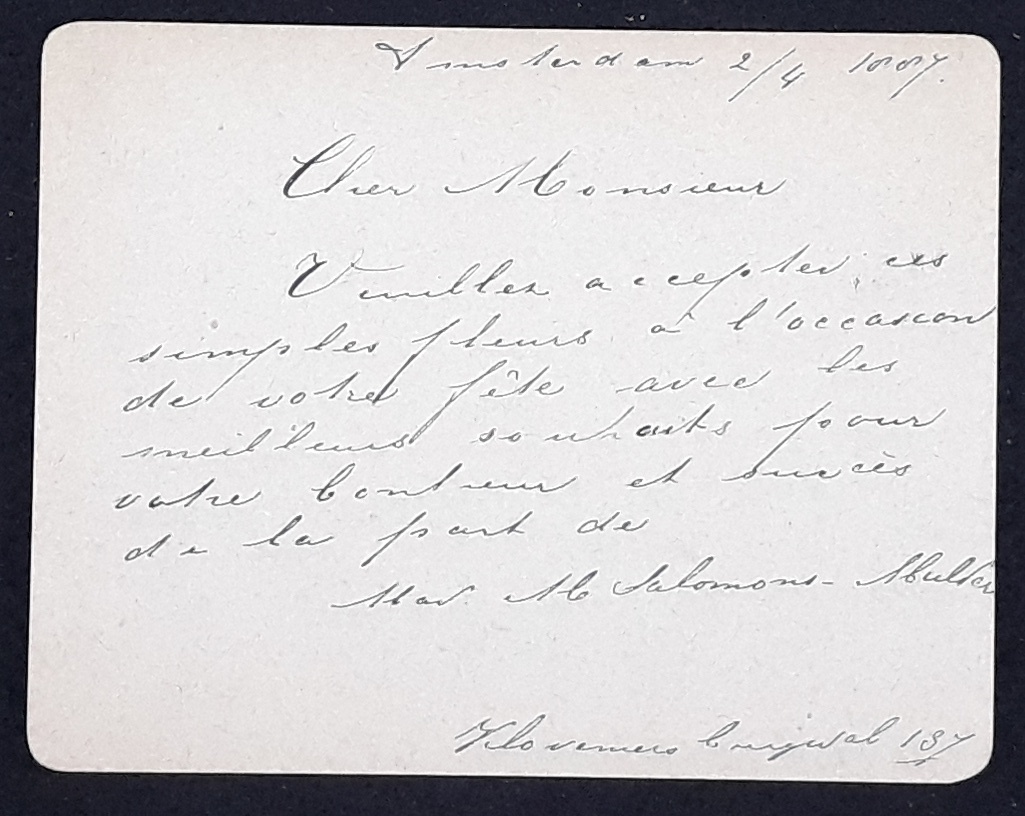 Amsterdam 2/4 1887.
Cher Monsieur
Veuillez accepter ces
simples fleurs à l'occasion
de votre fête avec les
meilleurs souhaits pour
votre bonheur et succès
de la part de
Mad. M Salomons-Mulder
Kloveniers burgwal 137